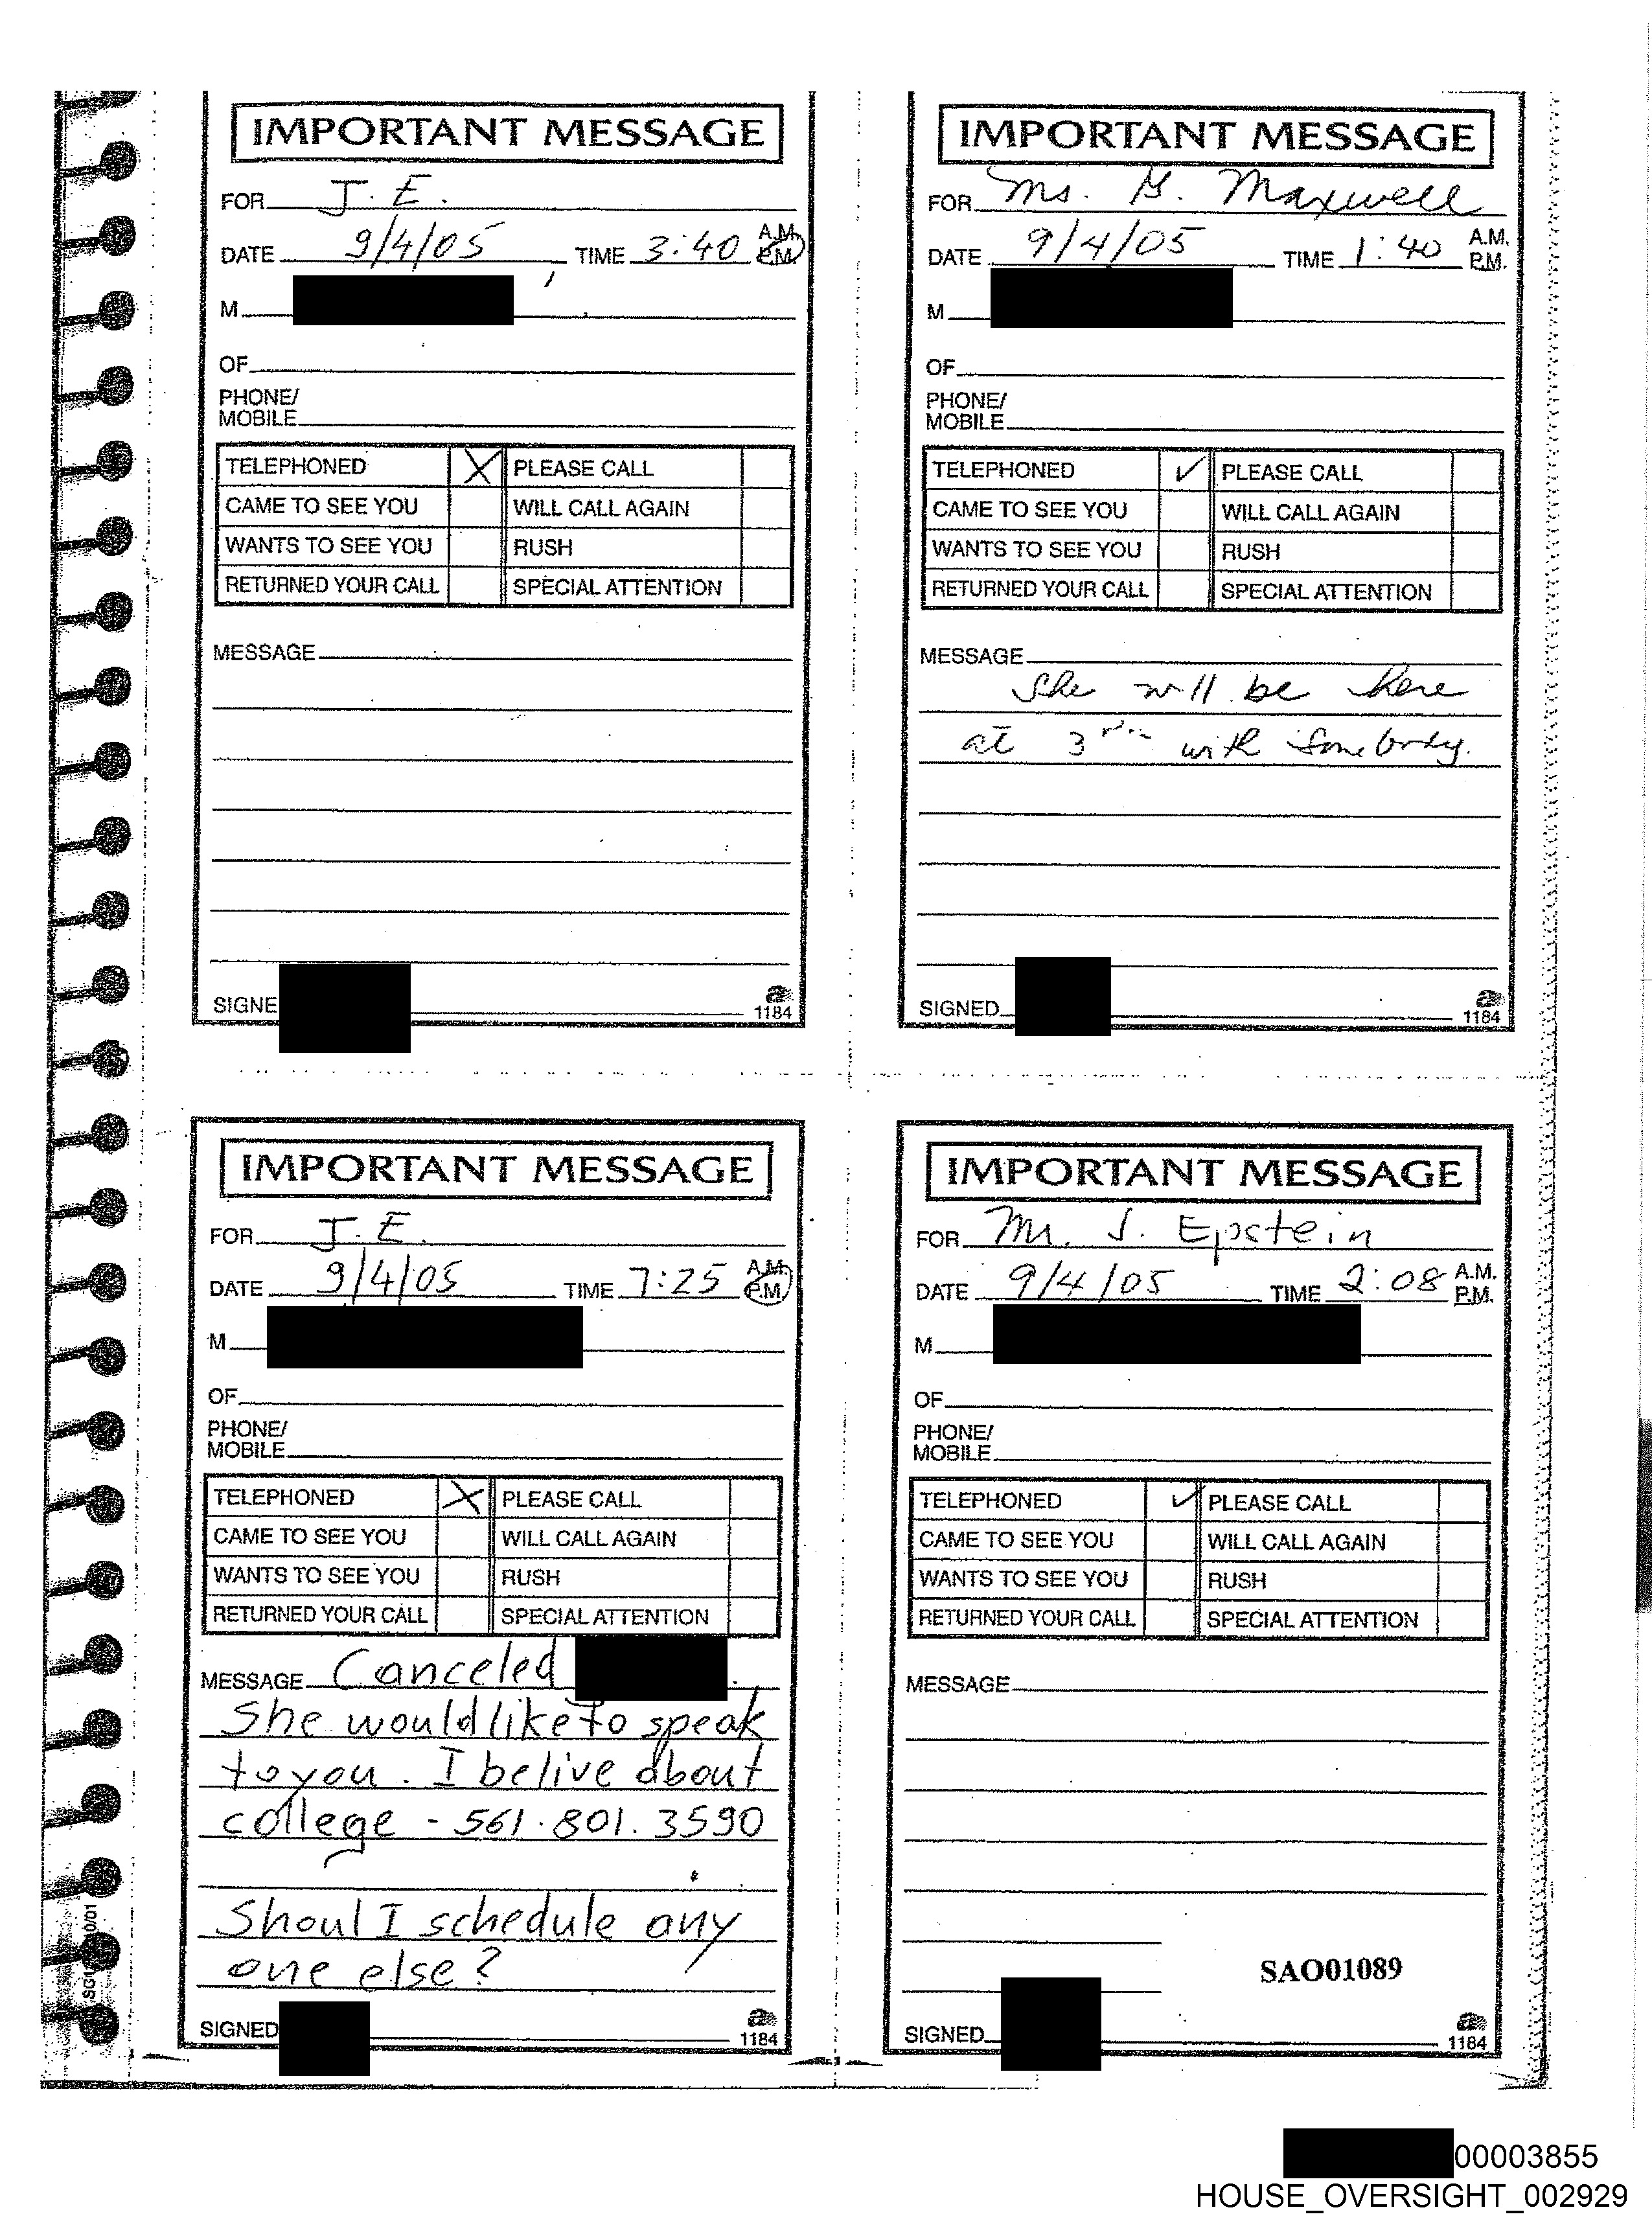 IMPORTANT MESSAGE
FOR J. E.
DATE 9/4/05 TIME 3:40 A.M. P.M.
M
OF
PHONE/
MOBILE
TELEPHONED X PLEASE CALL
CAME TO SEE YOU WILL CALL AGAIN
WANTS TO SEE YOU RUSH
RETURNED YOUR CALL SPECIAL ATTENTION
MESSAGE
SIGNE
a
1184
IMPORTANT MESSAGE
FOR Ms. G. Maxwell
DATE 9/4/05 TIME 1:40 A.M. P.M.
M
OF
PHONE/
MOBILE
TELEPHONED ✓ PLEASE CALL
CAME TO SEE YOU WILL CALL AGAIN
WANTS TO SEE YOU RUSH
RETURNED YOUR CALL SPECIAL ATTENTION
MESSAGE
She will be here
at 3 with somebody.
SIGNED
a
1184
IMPORTANT MESSAGE
FOR J. E.
DATE 9/4/05 TIME 7:25 A.M. P.M.
M
OF
PHONE/
MOBILE
TELEPHONED X PLEASE CALL
CAME TO SEE YOU WILL CALL AGAIN
WANTS TO SEE YOU RUSH
RETURNED YOUR CALL SPECIAL ATTENTION
MESSAGE Canceled
She would like to speak
to you. I belive about
college - 561.801.3590
Shoul I schedule any
one else?
SIGNED
a
1184
IMPORTANT MESSAGE
FOR Mr. J. Epstein
DATE 9/4/05 TIME 2:08 A.M. P.M.
M
OF
PHONE/
MOBILE
TELEPHONED ✓ PLEASE CALL
CAME TO SEE YOU WILL CALL AGAIN
WANTS TO SEE YOU RUSH
RETURNED YOUR CALL SPECIAL ATTENTION
MESSAGE
SAO01089
SIGNED
a
1184
00003855
HOUSE_OVERSIGHT_002929